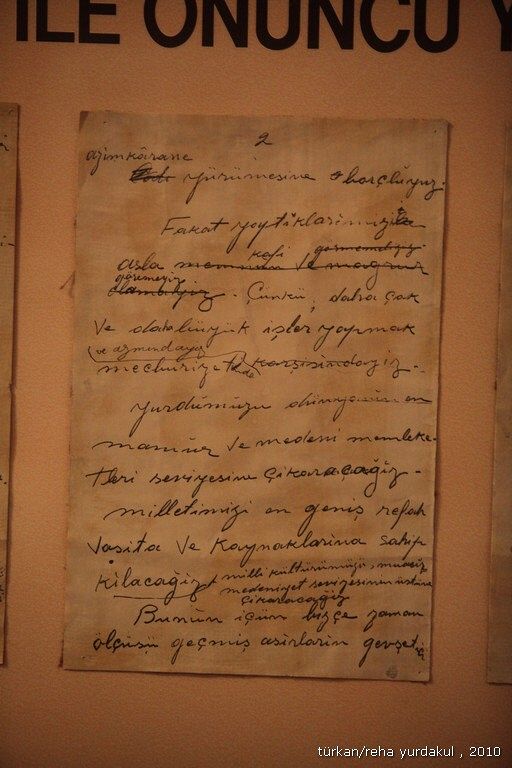 İLE ONUNCU Y
2
azimkârane
yürümesine borçluyuz.
Fakat yaptıklarımızı
asla kâfi görmemeliyiz
göremeyiz
. Çünkü, daha çok
ve daha büyük işler yapmak
ve azmindeyiz
mecburiyetinde karşısındayız.
Yurdumuzu dünyanın en
mamûr ve medenî memleke-
tleri seviyesine çıkaracağız.
milletimizi en geniş refah
vasıta ve kaynaklarına sahip
kılacağız millî kültürümüzü, muasır
medeniyet seviyesinin üstüne
çıkaracağız
Bunun için bizce zaman
ölçüsü geçmiş asırların gevşeti
türkan/reha yurdakul , 2010